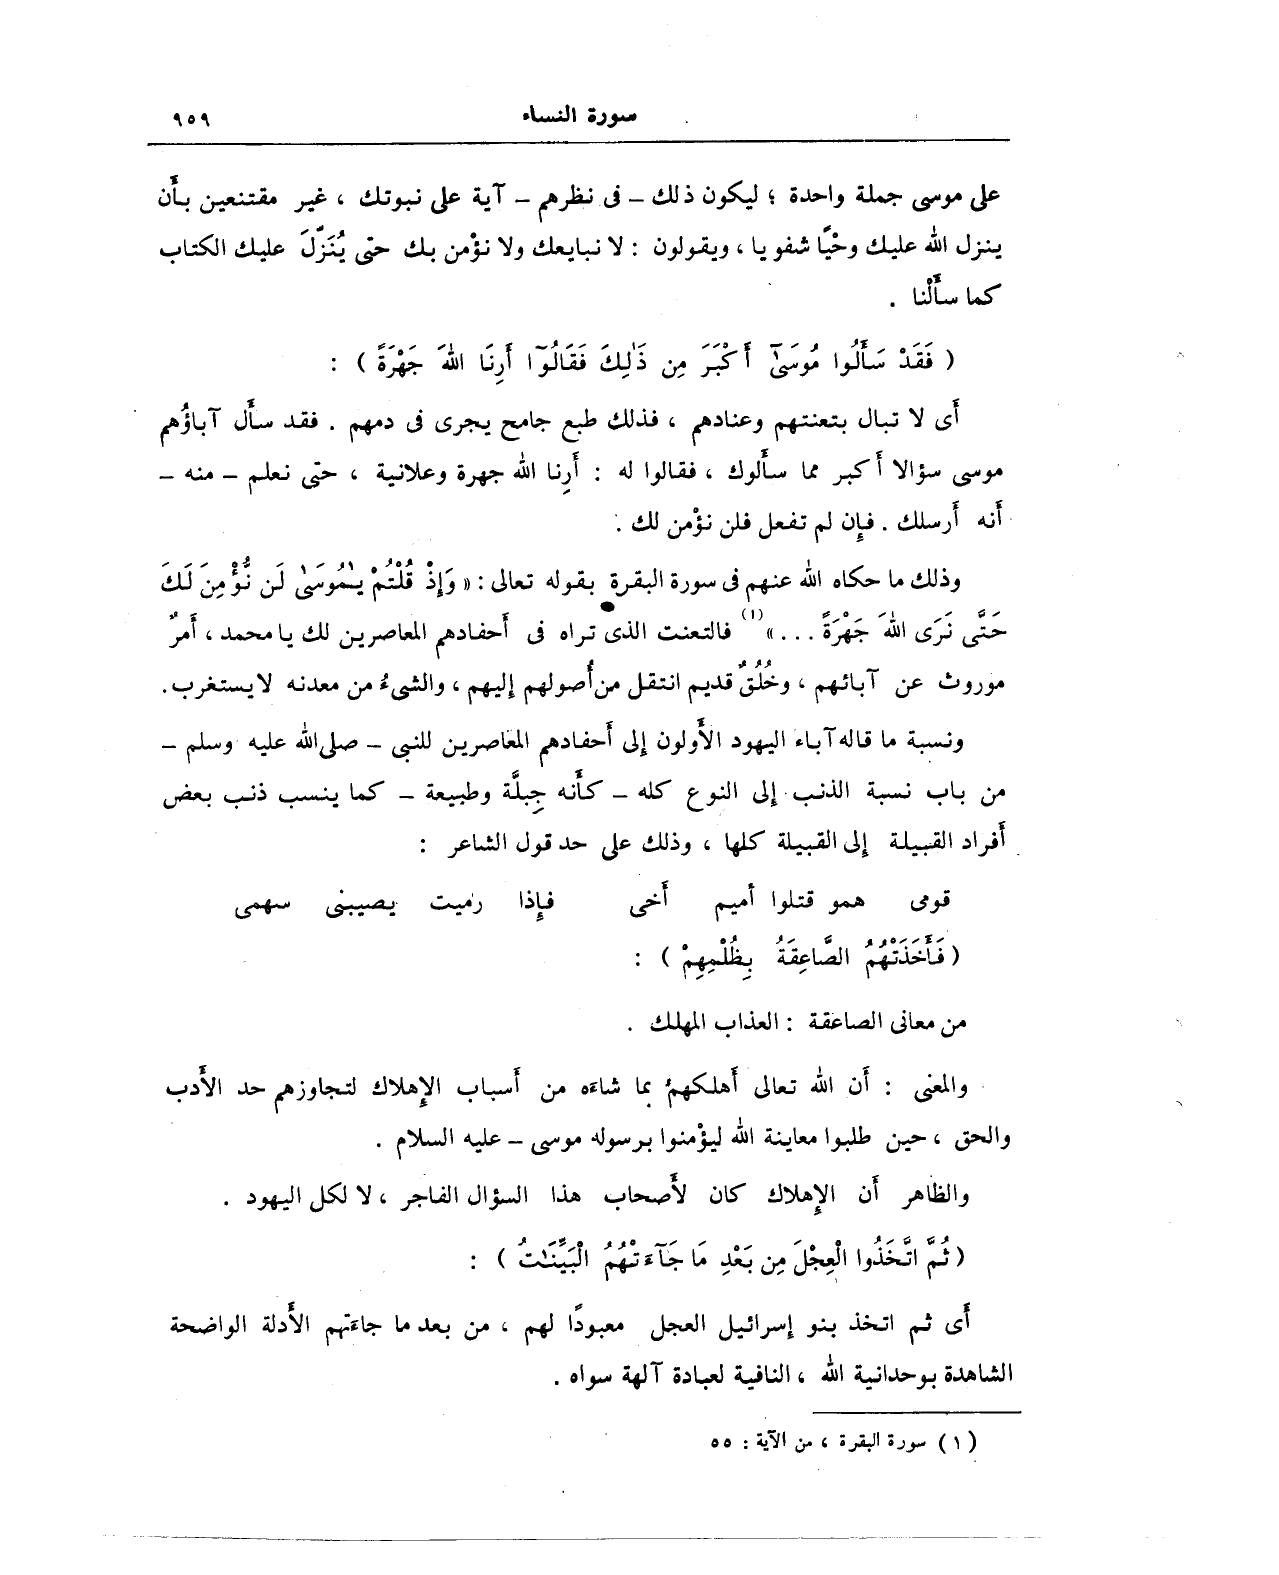 سورة النساء ٩٥٩
على موسى جملة واحدة ؛ ليكون ذلك – فى نظرهم – آية على نبوتك ، غير مقتنعين بأَن
ينزل الله عليك وحْيًا شفويا ، ويقولون : لا نبايعك ولا نؤْمن بك حتى يُنَزّلَ عليك الكتاب
كما سأَلْنا .
( فَقَدْ سَأَلُوا مُوسَىٰٓ أَكْبَرَ مِن ذَٰلِكَ فَقَالُوٓا أَرِنَا اللهَ جَهْرَةً ) :
أَى لا تبال بتعنتهم وعنادهم ، فذلك طبع جامح يجرى فى دمهم . فقد سأَل آباؤُهم
موسى سؤالا أَكبر مما سأَلوك ، فقالوا له : أَرِنا الله جهرة وعلانية ، حتى نعلم – منه –
أَنه أَرسلك . فإِن لم تفعل فلن نؤْمن لك .
وذلك ما حكاه الله عنهم فى سورة البقرة بقوله تعالى : « وَإِذْ قُلْتُمْ يَٰمُوسَىٰ لَن نُّؤْمِنَ لَكَ
حَتَّى نَرَى اللهَ جَهْرَةً ... »(١) فالتعنت الذى تراه فى أَحفادهم المعاصرين لك يا محمد ، أَمرٌ
موروث عن آبائهم ، وخُلُقٌ قديم انتقل من أُصولهم إليهم ، والشىءُ من معدنه لا يستغرب .
ونسبة ما قاله آباء اليهود الأَولون إلى أَحفادهم المعاصرين للنبى – صلى الله عليه وسلم –
من باب نسبة الذنب إلى النوع كله – كأَنه جِبلَّة وطبيعة – كما ينسب ذنب بعض
أَفراد القبيلة إلى القبيلة كلها ، وذلك على حد قول الشاعر :
قومى همو قتلوا أميم أَخى فإِذا رميت يصيبنى سهمى
( فَأَخَذَتْهُمُ الصَّاعِقَةُ بِظُلْمِهِمْ ) :
من معانى الصاعقة : العذاب المهلك .
والمعنى : أَن الله تعالى أَهلكهم بما شاءَه من أَسباب الإِهلاك لتجاوزهم حد الأَدب
والحق ، حين طلبوا معاينة الله ليؤمنوا برسوله موسى – عليه السلام .
والظاهر أَن الإِهلاك كان لأَصحاب هذا السؤال الفاجر ، لا لكل اليهود .
( ثُمَّ اتَّخَذُوا الْعِجْلَ مِن بَعْدِ مَا جَآءَتْهُمُ الْبَيِّنَٰتُ ) :
أَى ثم اتخذ بنو إسرائيل العجل معبودًا لهم ، من بعد ما جاءتهم الأَدلة الواضحة
الشاهدة بوحدانية الله ، النافية لعبادة آلهة سواه .
( ١ ) سورة البقرة ، من الآية : ٥٥